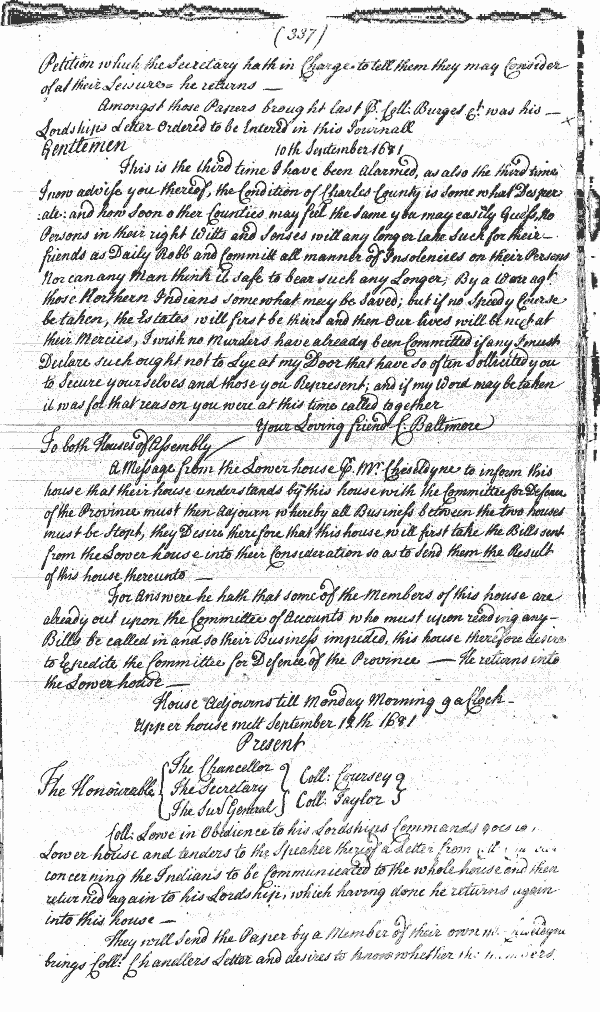 (337)
Petition which the Secretary hath in Charge to tell them they may Consider
of at their Leisure = he returns —
Amongst those Papers brought last P. Coll: Burges &c. was his —
Lordships Letter Ordered to be Entered in this Journall
Gentlemen 10th September 1681
This is the third time I have been Alarmed, as also the third time
I now advise you thereof, the Condition of Charles County is some what Desper
ate: and how soon other Counties may feel the same you may easily Guess, No
Persons in their right Witts and Senses will any longer take such for their
friends as Daily Robb and Committ all manner of Insolencies on their Persons
Nor can any Man think it safe to bear such any Longer; By a Warr agt.
those Northern Indians somewhat may be Saved; but if no Speedy Course
be taken, the Estates will first be theirs and then Our lives will be next at
their Mercies, I wish no Murders have already been Committed if any I must
Declare such ought not to Lye at my Door that have so often Sollicited you
to Secure yourselves and those you Represent; and if my Word may be taken
it was for that reason you were at this time called together
Your Loving friend C: Baltimore
To both Houses of Assembly
A Message from the Lower house P. Mr. Cheseldyne to inform this
house that their house understands by this house with the Committee for Defence
of the Province must then Adjourn whereby all Business between the two houses
must be Stopt, they Desire therefore that this house will first take the Bills sent
from the Lower house into their Consideration so as to Send them the Result
of this house thereunto —
For Answere he hath that some of the Members of this house are
already out upon the Committee of Accounts who must upon reading any
Bills be called in and so their Business impeded, this house therefore desire
to Expedite the Committee for Defence of the Province — He returns into
the Lower house —
House Adjourns till Monday Morning 9 a Clock —
Upper house mett September 12th 1681
Present
The Honourable { The Chancellor
The Secretary
The Sur General } Coll: Coursey
Coll: Taylor }
Coll: Lowe in Obedience to his Lordships Commands goes
Lower house and tenders to the Speaker thereof a Letter from
concerning the Indians to be Communicated to the whole house and then
returned again to his Lordship, which having done he returns again
into this house —
They will Send the Paper by a Member of their own
brings Coll: Chandlers Letter and desires to know whether the Members